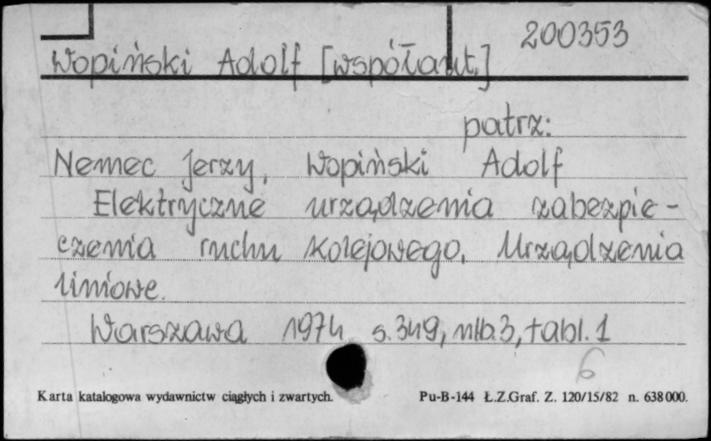 200353
Wopiński Adolf [współaut.]
patrz:
Nemec Jerzy, Wopiński Adolf
Elektryczne urządzenia zabezpie-
czenia ruchu kolejowego. Urządzenia
liniowe.
Warszawa 1974 s. 349, nlb. 3, tabl. 1
6
Karta katalogowa wydawnictw ciągłych i zwartych. Pu-B-144 Ł.Z.Graf. Z. 120/15/82 n. 638 000.